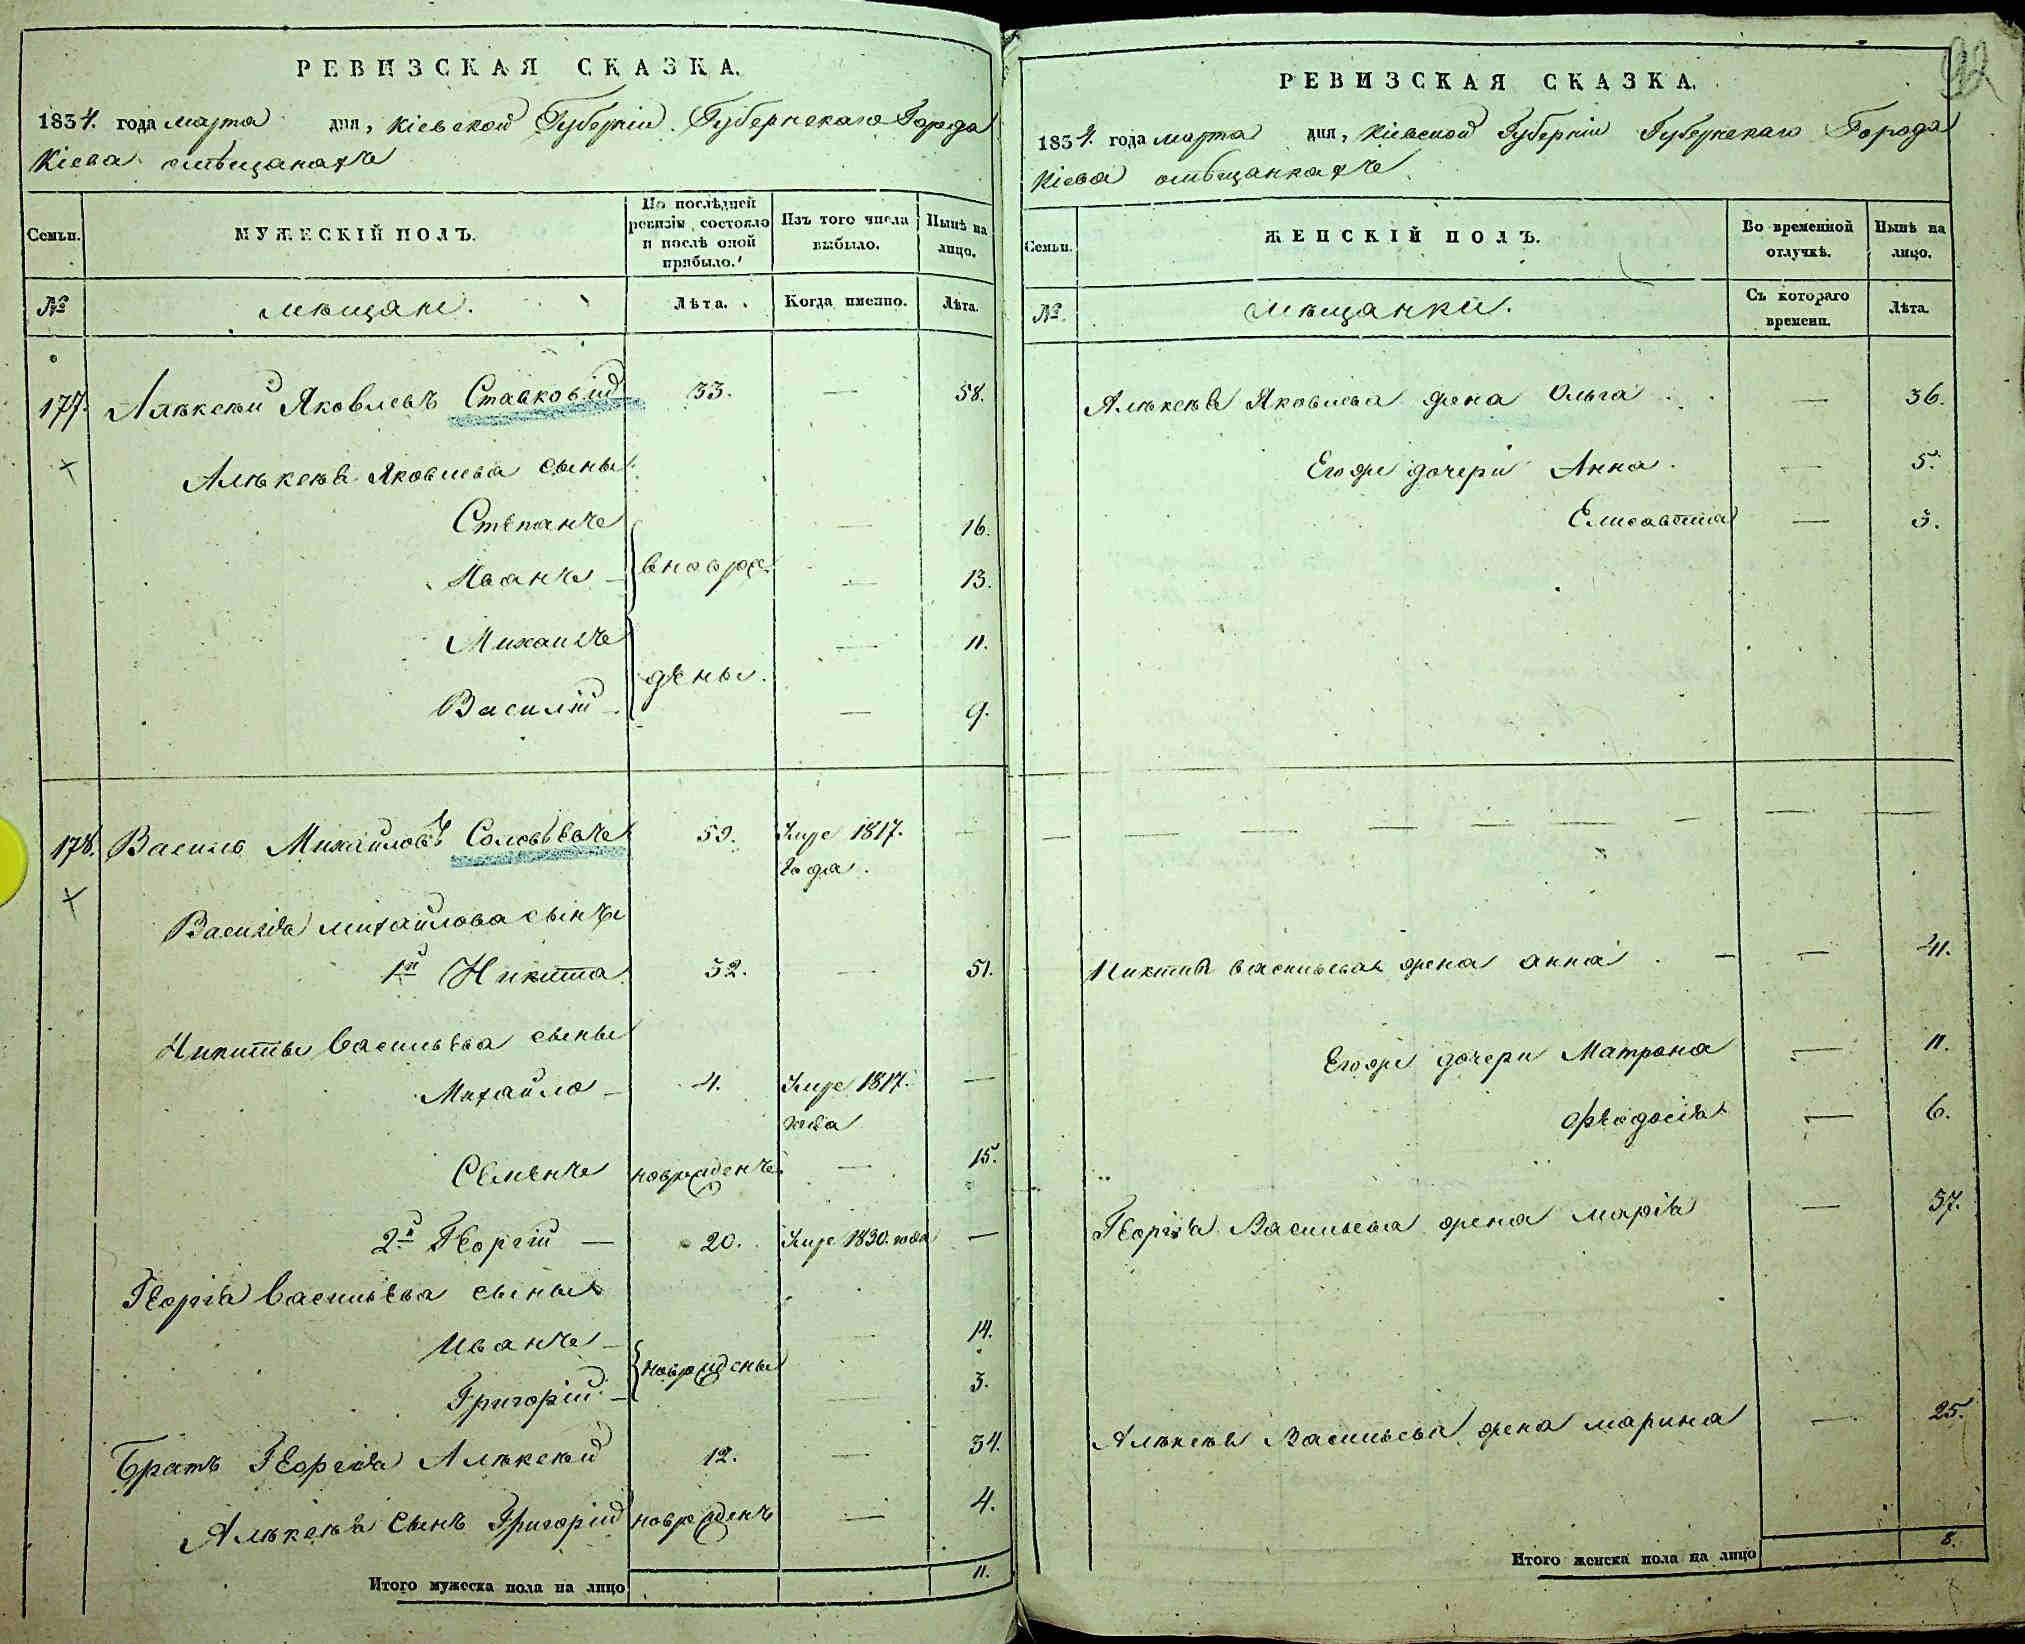 РЕВИЗСКАЯ СКАЗКА.
1834. года марта дня, Кіевской Губерніи Губернскаго Города
Кіева омѣщанахъ
Семьи.
МУЖЕСКІЙ ПОЛЪ.
По послѣдней ревизіи состояло и послѣ оной прибыло.
Изъ того числа выбыло.
Нынѣ на лицо.
№
мѣщане.
Лѣта.
Когда именно.
Лѣта.
177. Алѣксѣй Яковлевъ Ставковій 33. — 58.
Алѣксѣя Яковлева сыны
Стѣпанъ — 16.
Иванъ — вновро — 13.
Михаилъ — 11.
Василій — дены. — 9.
178. Василь Михайловъ Соловьёвъ 59. Умре 1817. —
года.
Василія михайлова сынъ
1й Никита 32. — 51.
Никиты Васильева сыны
Михайло — 4. Умре 1817. —
года
Семенъ новрожденъ — 15.
2й Георгій — 20. Умре 1830. года —
Георгія Васильева сыны
Иванъ — — 14.
новрождены
Григорій — — 3.
Братъ Георгія Алѣксѣй 12. — 34.
Алѣксѣя Сынъ Григорій новрожденъ — 4.
Итого мужеска пола на лицо 11.
92
РЕВИЗСКАЯ СКАЗКА.
1834. года марта дня, Кіевской Губерніи Губернскаго Города
Кіева омѣщанкахъ
Семьи.
ЖЕНСКІЙ ПОЛЪ.
Во временной отлучкѣ.
Нынѣ на лицо.
№.
мѣщанки.
Съ котораго времени.
Лѣта.
Алѣксѣя Яковлева жена Ольга — 36.
Егоже дочери Анна — 5.
Елисавета — 3.
Никиты васильева жена анна — — 41.
Егоже дочери Матрона — 11.
Феодосія — 6.
Георгія Васильева жена марія — 37.
Алѣксѣя Васильева жена марина — 25.
Итого женска пола на лицо 8.